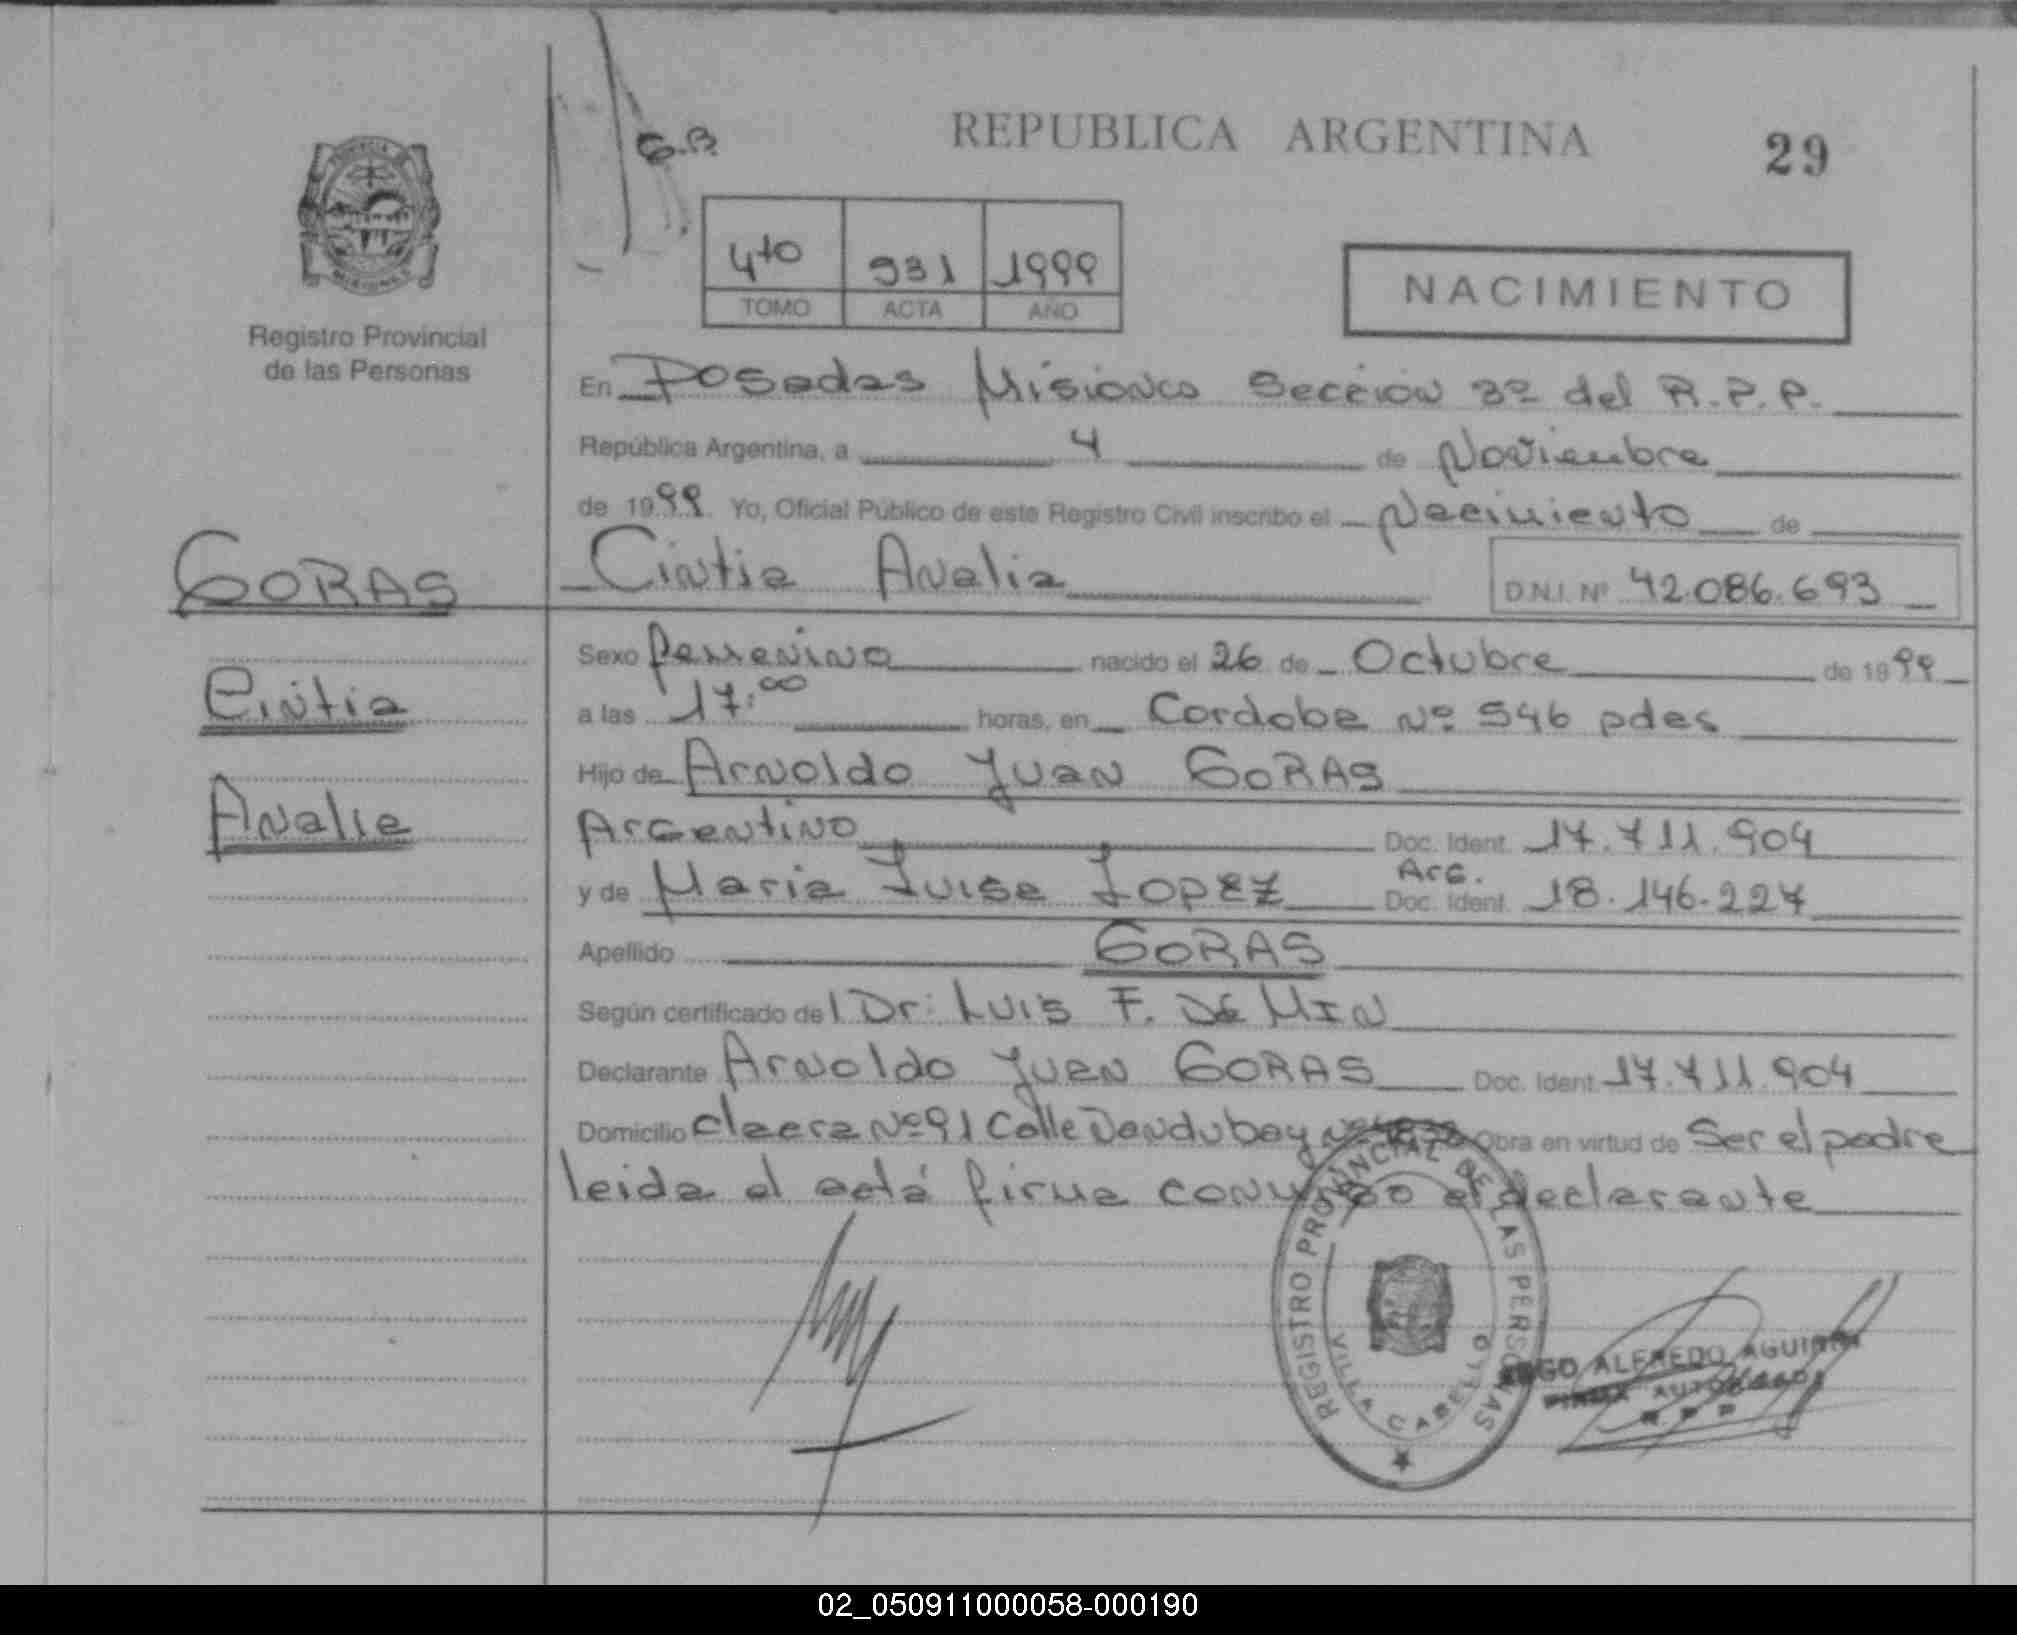 G.B.
REPUBLICA ARGENTINA
29
4to 931 1999
TOMO ACTA AÑO
NACIMIENTO
PROVINCIA DE
MISIONES
Registro Provincial
de las Personas
En Posadas Misiones Sección 3º del R.P.P.
República Argentina, a 4 de Noviembre
de 1999. Yo, Oficial Público de este Registro Civil inscribo el Nacimiento de
GORAS
Cintia Analia
D.N.I. Nº 42.086.693
Sexo femenino nacido el 26 de Octubre de 1999
Cintia
a las 17:00 horas, en Cordoba Nº 546 pdas
Hijo de Arnoldo Juan GORAS
Analia
Argentino Doc. Ident. 17.711.904
y de Maria Luisa Lopez Arg. Doc. Ident. 18.146.227
Apellido GORAS
Según certificado del Dr: Luis F. De MIN
Declarante Arnoldo Juan GORAS Doc. Ident. 17.711.904
Domicilio chacra Nº 91 Calle Ñandubay Obra en virtud de Ser el padre
leida el acta firma conmigo el declarante
REGISTRO PROVINCIAL DE LAS PERSONAS
VILLA CABELLO
ALFREDO AGUIRRE
FIRMA AUTORIZADA
R P P
02_050911000058-000190